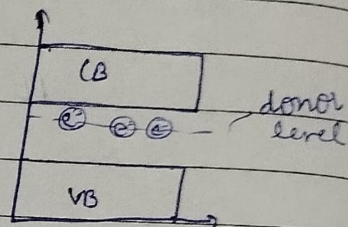 CB
e⁻ e⁻ e⁻
donor
level
VB